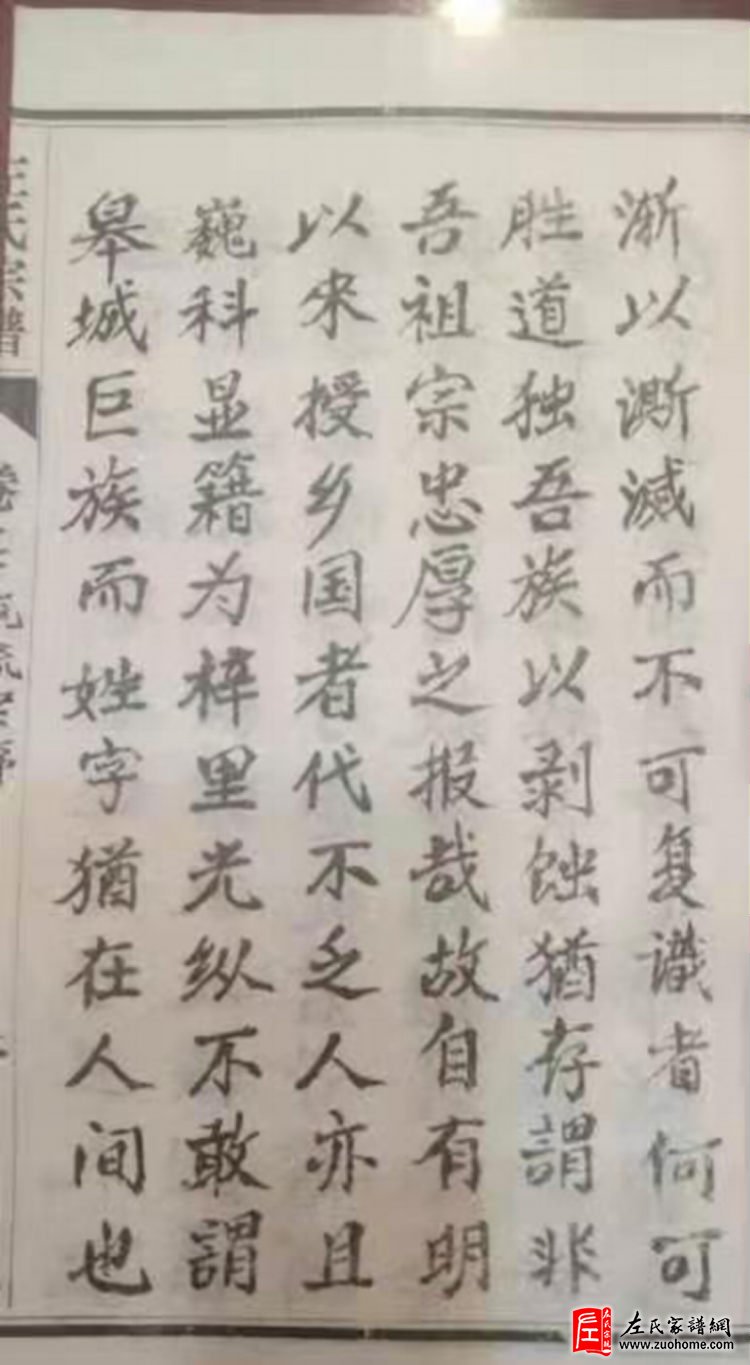 渐以澌滅而不可复識者何可
胜道独吾族以剥蝕猶存謂非
吾祖宗忠厚之报哉故自有明
以來授乡国者代不乏人亦且
巍科显籍为梓里光纵不敢謂
皋城巨族而姓字猶在人间也
左氏宗譜
左氏家譜網
www.zuohome.com